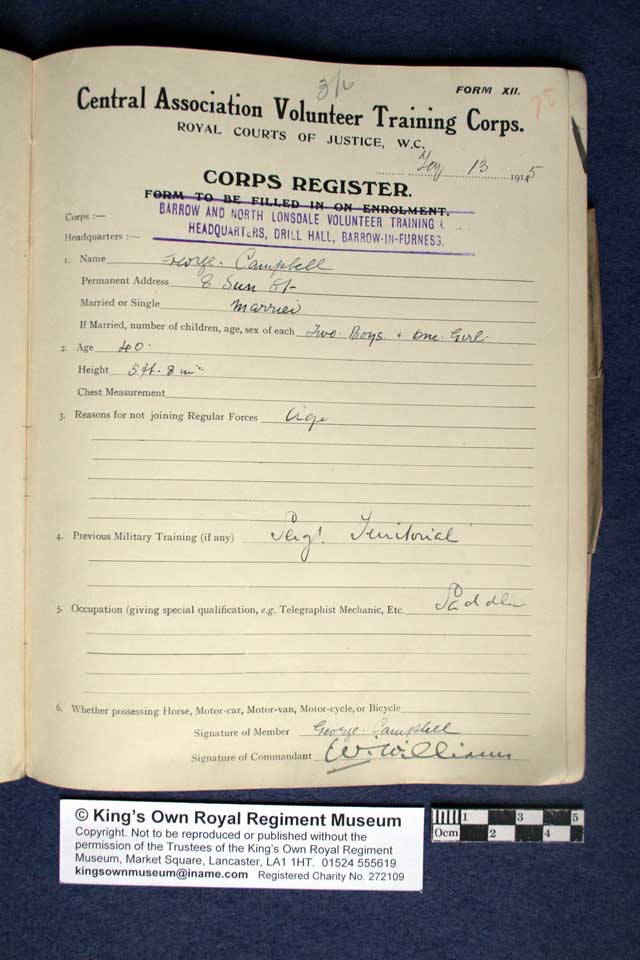 3/6
FORM XII.
75
Central Association Volunteer Training Corps.
ROYAL COURTS OF JUSTICE, W.C.
13 1915
CORPS REGISTER.
FORM TO BE FILLED IN ON ENROLMENT.
Corps :— BARROW AND NORTH LONSDALE VOLUNTEER TRAINING C
Headquarters :— HEADQUARTERS, DRILL HALL, BARROW-IN-FURNESS.
1. Name George. Campbell
Permanent Address 8 Sun St
Married or Single Married
If Married, number of children, age, sex of each Two Boys + One Girl
2. Age 40
Height 5 ft. 8 in
Chest Measurement
3. Reasons for not joining Regular Forces Age
4. Previous Military Training (if any) Sergt. Territorial
5. Occupation (giving special qualification, e.g. Telegraphist Mechanic, Etc. Saddler
6. Whether possessing Horse, Motor-car, Motor-van, Motor-cycle, or Bicycle
Signature of Member George. Campbell
Signature of Commandant W. Williams
© King's Own Royal Regiment Museum
Copyright. Not to be reproduced or published without the
permission of the Trustees of the King's Own Royal Regiment
Museum, Market Square, Lancaster, LA1 1HT. 01524 555619
kingsownmuseum@iname.com Registered Charity No. 272109
1 3 5
0cm 2 4